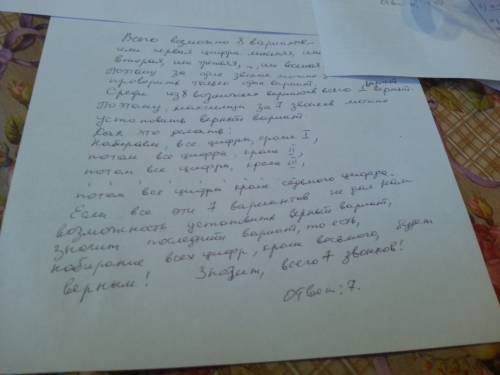 Всего возможно 8 вариантов –
или первая цифра лишняя, или
вторая, или третья, .., или восьмая
Поэтому за один звонок можно
проверить только один вариант
Среди из 8 возможных вариантов всего 1 верный.
Поэтому, максимум за 7 звонков можно
установить верный вариант
Как это делать:
Набираем все цифры, кроме I,
потом все цифры, кроме II,
потом все цифры, кроме III,
потом все цифры кроме седьмого цифра.
Если все эти 7 вариантов не дал нам
возможность установить верный вариант,
значит последний вариант, то есть,
набирание всех цифр, кроме восьмого, будет
верным! Значит, всего 7 звонков!
Ответ: 7.